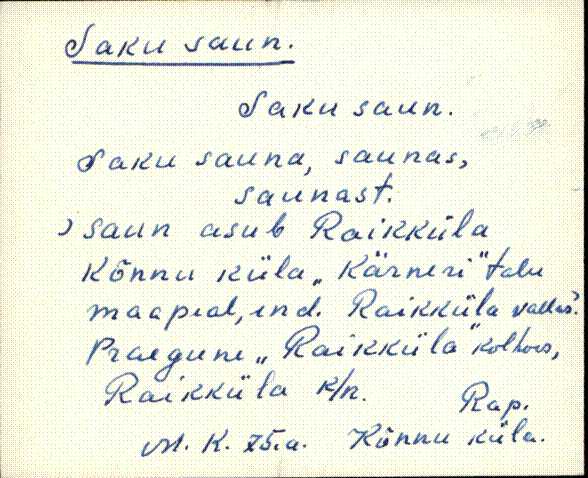 Saku saun.
Saku saun.
Saku sauna, saunas,
saunast.
saun asub Raikküla
Kõnnu küla „Kärneri" talu
maapeal, end. Raikküla vallas.
Praegune „Raikküla" kolhoos,
Raikküla k/n.
Rap.
M. K. 75.a. Kõnnu küla.